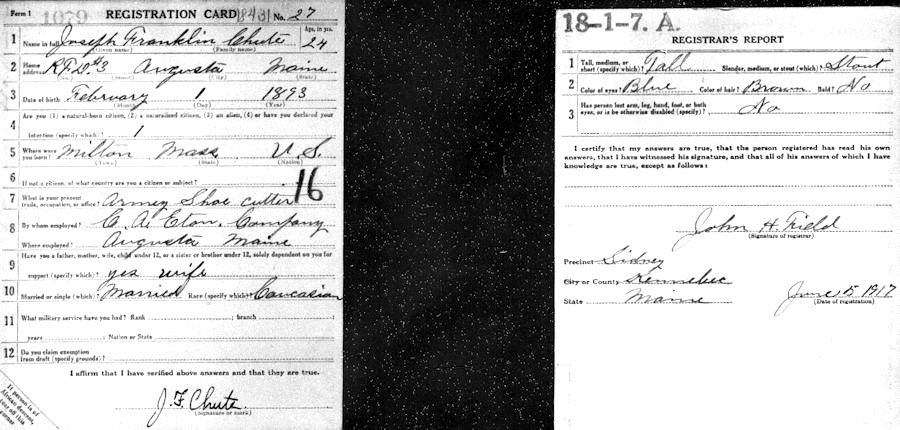 Form 1 1079 REGISTRATION CARD 18431 No. 27
1 Name in full Joseph Franklin Chute Age, in yrs. 24
(Given name) (Family name)
2 Home address R.F.D. #3 Augusta Maine
(Street) (City) (State)
3 Date of birth February 1 1893
(Month) (Day) (Year)
4 Are you (1) a natural-born citizen, (2) a naturalized citizen, (3) an alien, (4) or have you declared your
intention (specify which)? 1
5 Where were you born? Milton Mass U.S.
(Town) (State) (Nation)
6 If not a citizen, of what country are you a citizen or subject?
16
7 What is your present trade, occupation, or office? Armey Shoe Cutter
8 By whom employed? C. A. Eton. Company
Where employed? Augusta Maine
9 Have you a father, mother, wife, child under 12, or a sister or brother under 12, solely dependent on you for
support (specify which)? yes wife
10 Married or single (which)? Married Race (specify which)? Caucasian
11 What military service have you had? Rank ; branch ;
years ; Nation or State
12 Do you claim exemption from draft (specify grounds)?
I affirm that I have verified above answers and that they are true.
J. F. Chute
(Signature or mark)
If person is of
African descent,
tear off this
corner
18-1-7. A.
REGISTRAR'S REPORT
1 Tall, medium, or short (specify which)? Tall Slender, medium, or stout (which)? Stout
2 Color of eyes? Blue Color of hair? Brown Bald? No
3 Has person lost arm, leg, hand, foot, or both eyes, or is he otherwise disabled (specify)? No
I certify that my answers are true, that the person registered has read his own
answers, that I have witnessed his signature, and that all of his answers of which I have
knowledge are true, except as follows:
John H. Field
(Signature of registrar)
Precinct Sidney
City or County Kennebec
State Maine June 5 1917
(Date of registration)